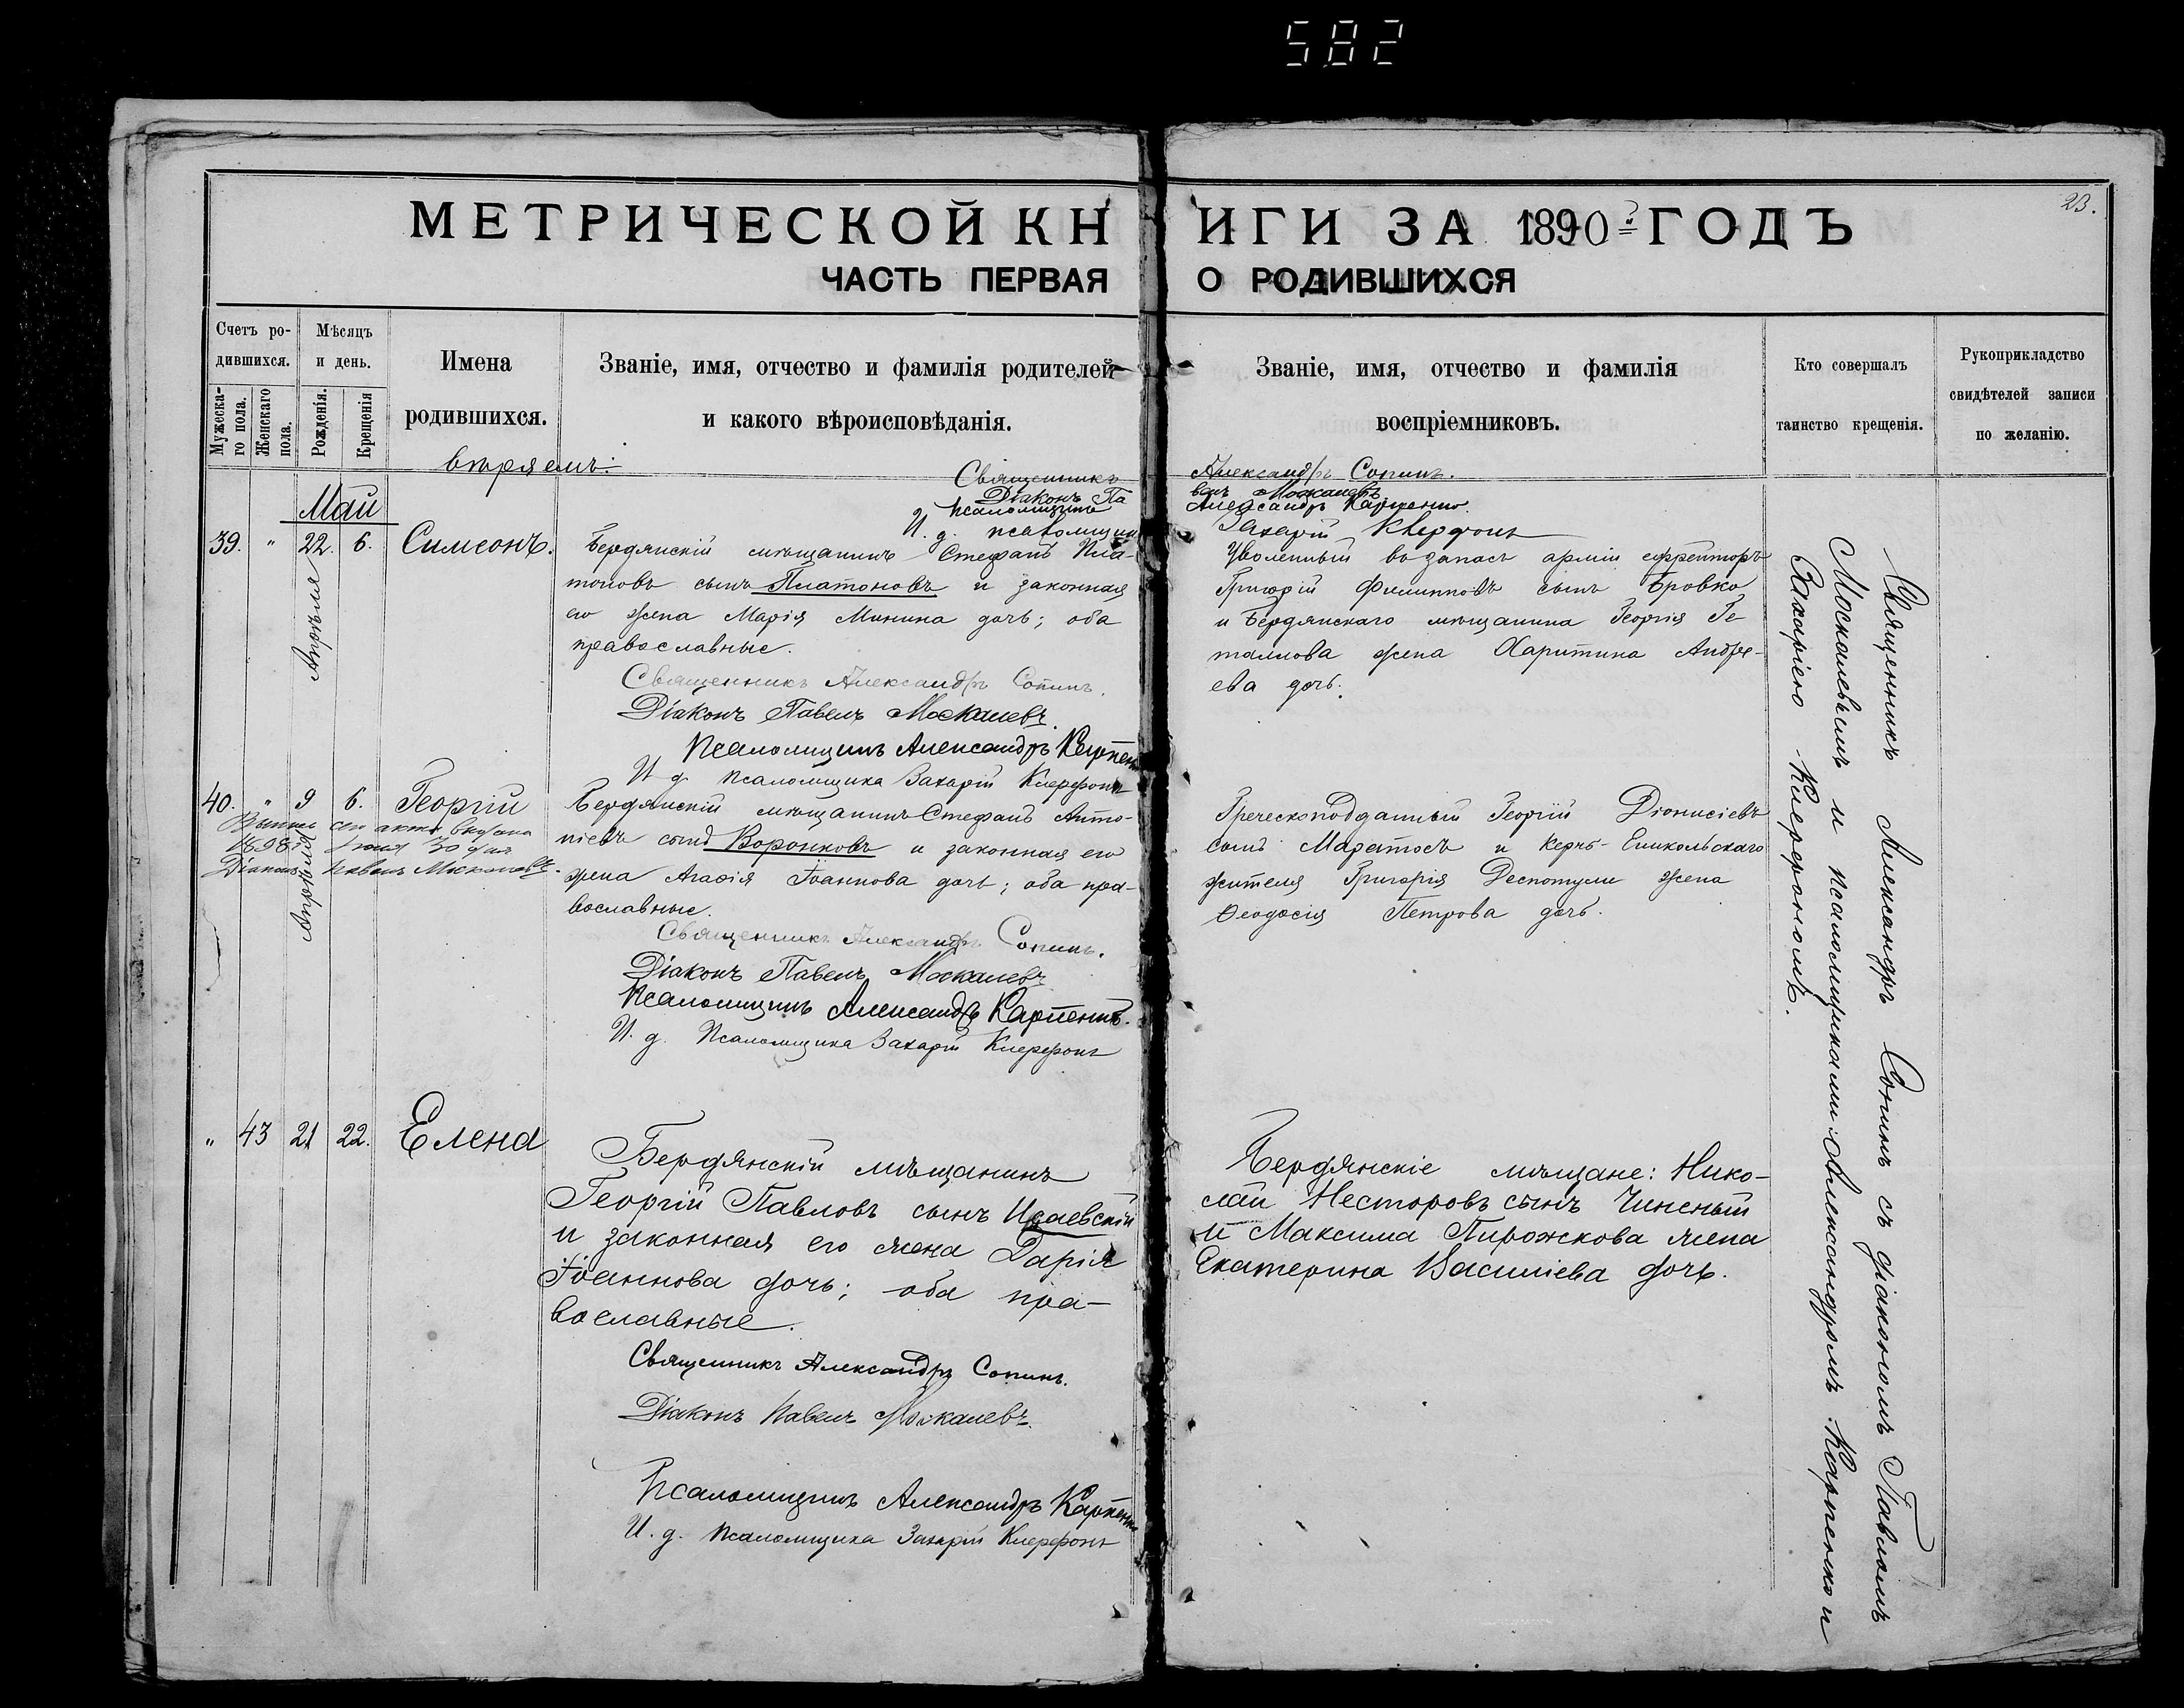 582
23.
МЕТРИЧЕСКОЙ КНИГИ ЗА 1890 ГОДЪ
ЧАСТЬ ПЕРВАЯ О РОДИВШИХСЯ
Счетъ ро-
дившихся.
Мужеска-
го пола.
Женскаго
пола.
Мѣсяцъ
и день.
Рожденія.
Крещенія
Имена
родившихся.
Званіе, имя, отчество и фамилія родителей
и какого вѣроисповѣданія.
Званіе, имя, отчество и фамилія
воспріемниковъ.
Кто совершалъ
таинство крещенія.
Рукоприкладство
свидѣтелей записи
по желанію.
Священникъ Александръ Сопинъ.
Діаконъ Павелъ Москалевъ
Псаломщикъ Александръ Карпенко.
И. д. псаломщика Захарій Клерфонъ
Май
39. " 22. 6. Симеонъ.
Апрѣля
Бердянскій мѣщанинъ Стефанъ Пла-
тоновъ сынъ Платоновъ и законная
его жена Марія Минина дочь; оба
православные.
Священникъ Александръ Сопинъ.
Діаконъ Павелъ Москалевъ.
Псаломщикъ Александръ Карпенко
И д. псаломщика Захарій Клерфонъ
Уволенный въ запасъ арміи ефрейторъ
Григорій Филипповъ сынъ Бровко
и Бердянскаго мѣщанина Георгія Ге
жена Харитина Андре-
ева дочь.
40. " 9 6. Георгій
Апрѣля
1898 г. Іюня 30 дня
Діаконъ Павелъ Москалевъ.
Бердянскій мѣщанинъ Стефанъ Анто-
ніевъ сынъ Воронковъ и законная его
жена Агафія Іоаннова дочь; оба пра-
вославные.
Священникъ Александръ Сопинъ.
Діаконъ Павелъ Москалевъ
Псаломщикъ Александръ Карпенко.
И. д. Псаломщика Захарій Клерфонъ
Греческоподданный Георгій Діонисіевъ
сынъ Маратосъ и Керчь-Еникольскаго
жителя Григорія Деспотули жена
Ѳеодосія Петрова дочь.
" 43 21 22. Елена
Бердянскій мѣщанинъ
Георгій Павловъ сынъ Исаевскій
и законная его жена Дарія
Іоаннова дочь; оба пра-
вославные.
Священникъ Александръ Сопинъ.
Діаконъ Павелъ Москалевъ.
Псаломщикъ Александръ Карпенко
И. д. Псаломщика Захарій Клерфонъ
Бердянскіе мѣщане: Нико-
лай Несторовъ сынъ Чиненый
и Максима Пирожкова жена
Екатерина Василіева дочь.
Священникъ Александръ Сопинъ съ діакономъ Павломъ
Москалевымъ и псаломщиками: Александромъ Карпенко и
Захаріею Клерфономъ.